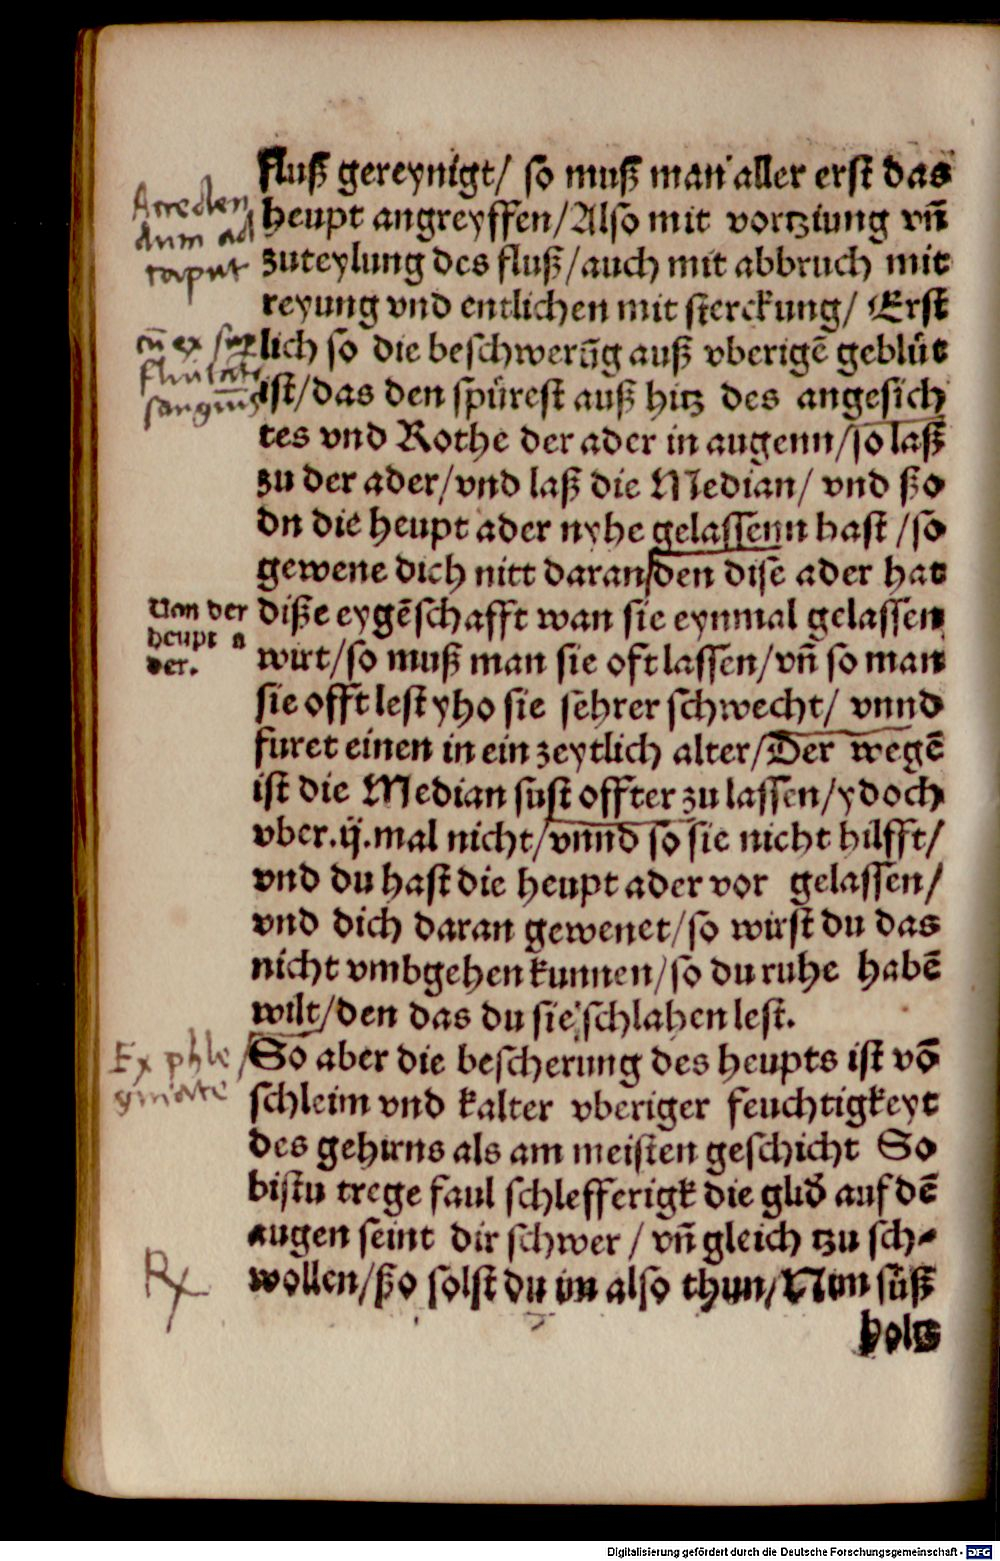 fluß gereynigt/ so muß man aller erst das
heupt angreyffen/Also mit vortziung vn̄
zuteylung des fluß/auch mit abbruch mit
reyung vnd entlichen mit sterckung/ Erst
lich so die beschwerūg auß vberigē geblüt
ist/das den spürest auß hitz des angesich
tes vnd Rothe der ader in augenn/so laß
zu der ader/vnd laß die Median/ vnd ßo
dn die heupt ader nyhe gelassenn hast /so
gewene dich nitt daran/den dise ader hat
diße eygēschafft wan sie eynmal gelassen
wirt/so muß man sie oft lassen/vn̄ so man
sie offt lest yho sie sehrer schwecht/ vnnd
furet einen in ein zeytlich alter/Der wegē
ist die Median sust offter zu lassen/ydoch
vber.ij.mal nicht/vnnd so sie nicht hilfft/
vnd du hast die heupt ader vor gelassen/
vnd dich daran gewenet/so wirst du das
nicht vmbgehen kunnen/so du ruhe habē
wilt/den das du sie schlahen lest.
So aber die bescherung des heupts ist vō
schleim vnd kalter vberiger feuchtigkeyt
des gehirns als am meisten geschicht So
bistu trege faul schlefferigk die glid auf dē
augen seint dir schwer / vn̄ gleich tzu sch-
wollen/ßo solst du im also thun/Nim süß
holtz
Acceden
dum ad
caput
cū ex sup
fluitate
sanguīs
Van der
heupt a
der.
Ex phle
gmate
Rx
Digitalisierung gefördert durch die Deutsche Forschungsgemeinschaft - DFG